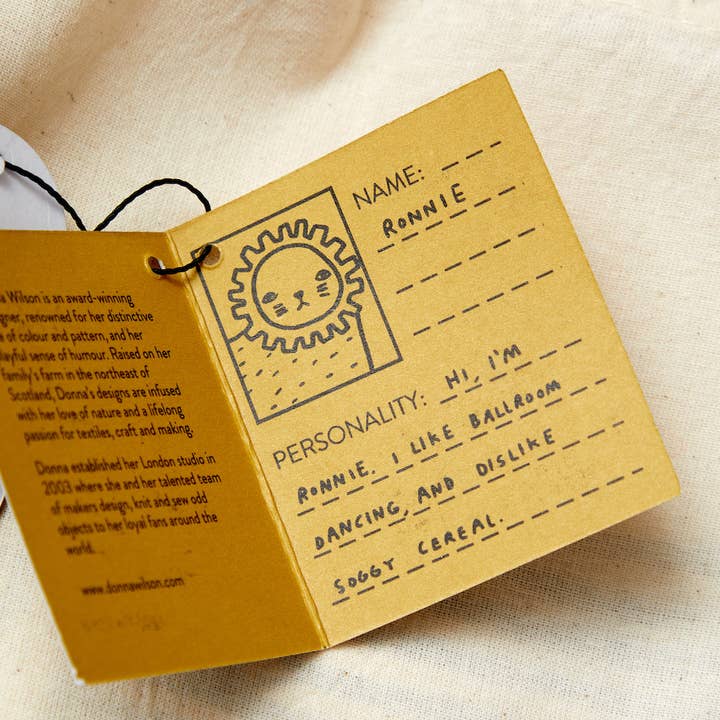 a Wilson is an award-winning
gner, renowned for her distinctive
of colour and pattern, and her
layful sense of humour. Raised on her
family's farm in the northeast of
Scotland, Donna's designs are infused
with her love of nature and a lifelong
passion for textiles, craft and making.
Donna established her London studio in
2003 where she and her talented team
of makers design, knit and sew odd
objects to her loyal fans around the
world.
www.donnawilson.com
NAME:
RONNIE
PERSONALITY: HI, I'M
RONNIE. I LIKE BALLROOM
DANCING AND DISLIKE
SOGGY CEREAL.